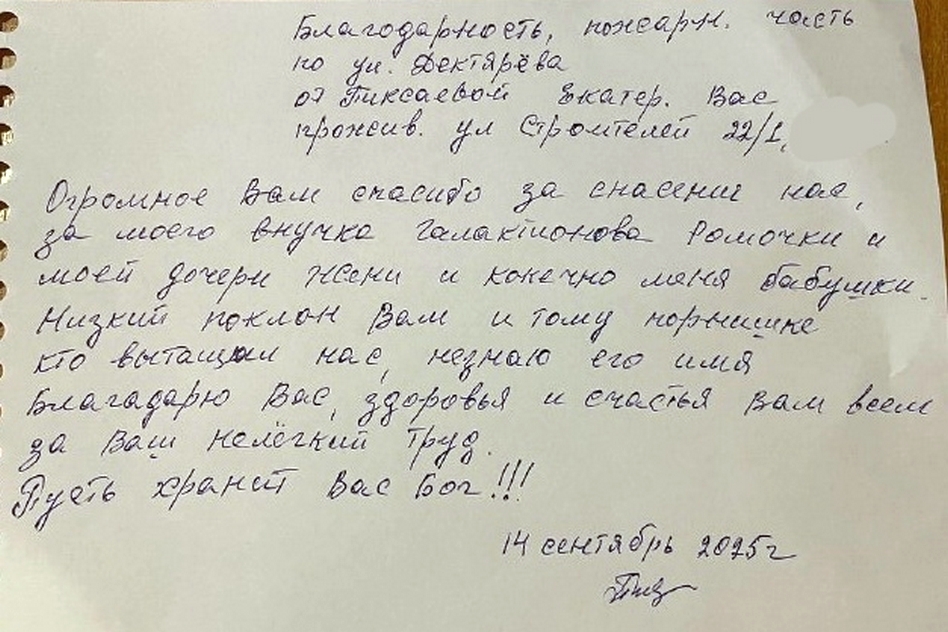 Благодарность, пожарн. часть
по ул. Дектярёва
от Тиксаевой Екатер. Вас
прожив. ул Строителей 22/1,
Огромное Вам спасибо за спасении нас,
за моего внучка Галактионова Ромочки и
моей дочери Жени и конечно меня бабушки.
Низкий поклон Вам и тому
кто вытащил нас, незнаю его имя
Благадарю Вас, здоровья и счастья Вам всем
за Ваш нелёгкий труд.
Пусть хранит Вас Бог!!!
14 сентябрь 2025г